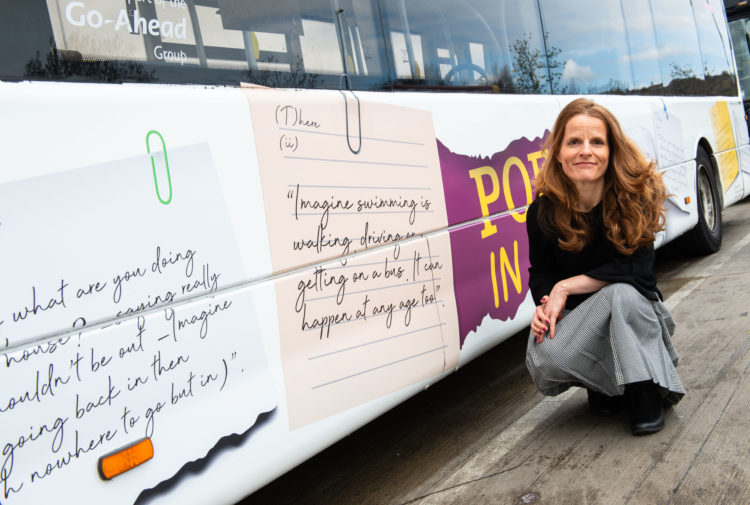 of the
Go-Ahead
Group
what are you doing
house? – saying really
be out – (Imagine
going back in then
nowhere to go but in)”.
(T)here
(ii)
“Imagine swimming is
walking, driving or
getting on a bus. It can
happen at any age too”.
PO
IN